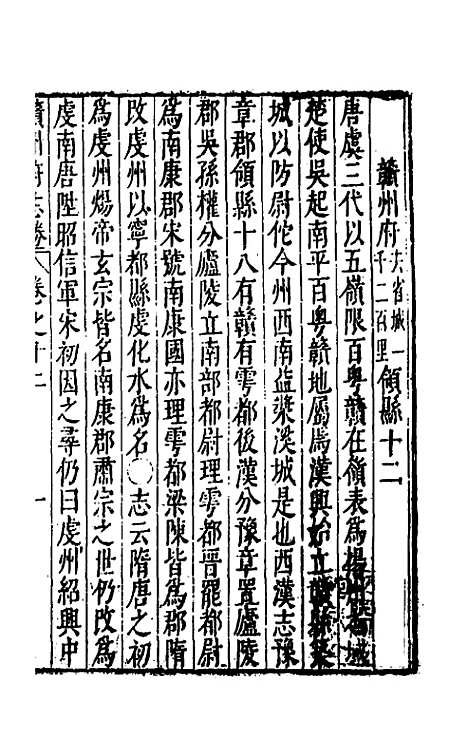 贛州府去省城一千二百里領縣十二
唐虞三代以五嶺限百粤贛在嶺表爲揚州域
楚使吳起南平百粤贛地屬焉漢興始立贛縣築
城以防尉佗今州西南益漿溪城是也西漢志豫
章郡領縣十八有贛有雩都後漢分豫章置廬陵
郡吳孫權分廬陵立南部都尉理雩都晉罷都尉
爲南康郡宋號南康國亦理雩都梁陳皆爲郡隋
改虔州以寧都縣虔化水爲名 志云隋唐之初
爲虔州煬帝玄宗皆名南康郡肅宗之世仍改爲
虔南唐陞昭信軍宋初因之尋仍曰虔州紹興中
贛州府志卷 卷之十二 一